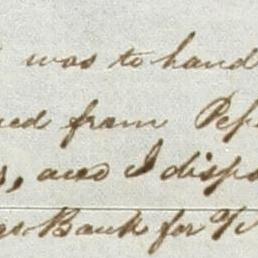 was to hand
from Pep
, and I dispo
Bank for